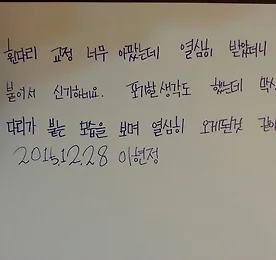 휜다리 교정 너무 아팠는데 열심히 받았더니
붙어서 신기하네요. 포기할 생각도 했는데 막상
다리가 붙는 모습을 보며 열심히 오게된것 같아
2015.12.28 이현정